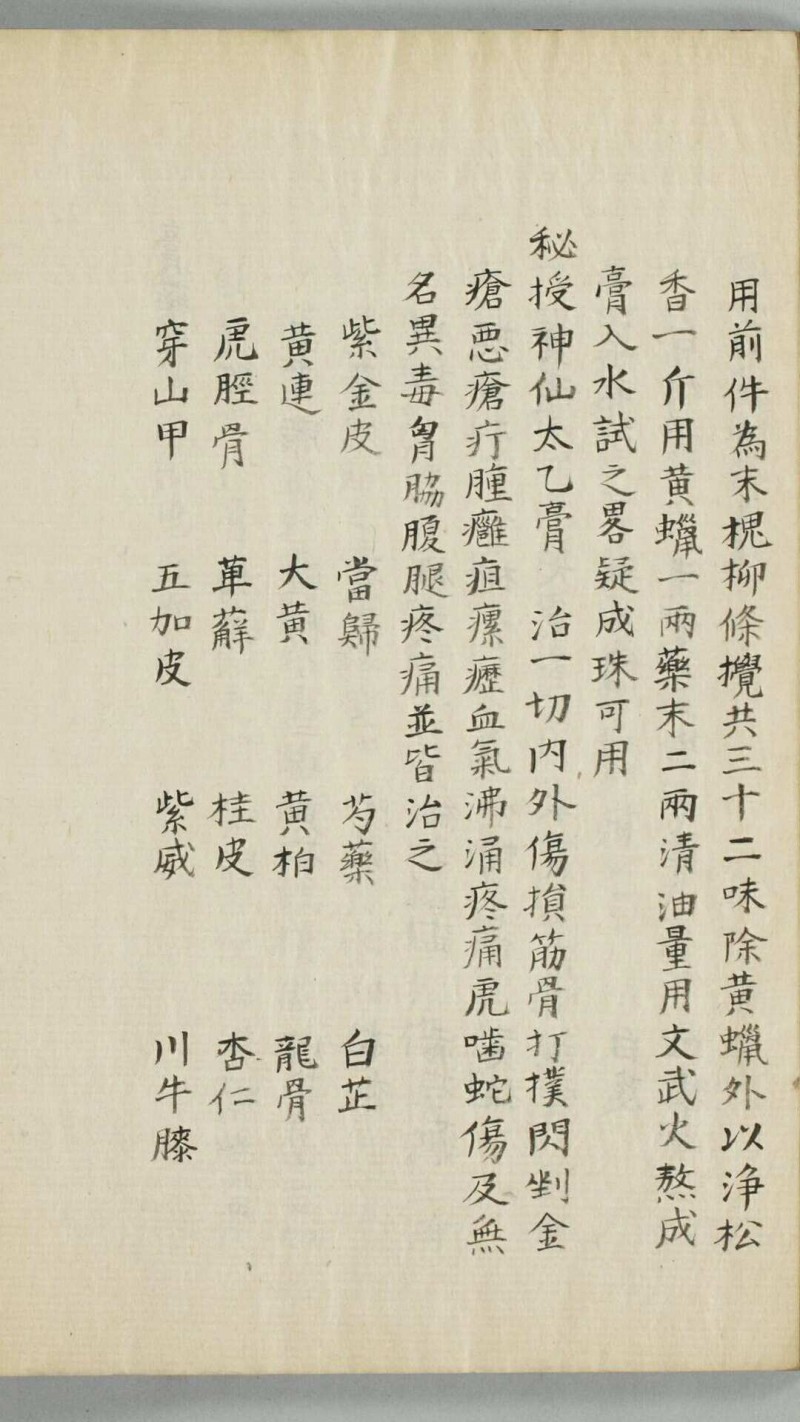 用前件為末槐柳條攪共三十二味除黃蠟外以淨松
香一斤用黃蠟一兩藥末二兩清油量用文武火熬成
膏入水試之畧疑成珠可用
秘授神仙太乙膏 治一切內外傷損筋骨打撲閃剉金
瘡悪瘡疔腫癰疽瘰癧血氣沸涌疼痛虎嚙蛇傷及無
名異毒胷脇腹腿疼痛並皆治之
紫金皮 當歸 芍藥 白芷
黃連 大黃 黃柏 龍骨
虎脛骨 萆薢 桂皮 杏仁
穿山甲 五加皮 紫威 川牛膝